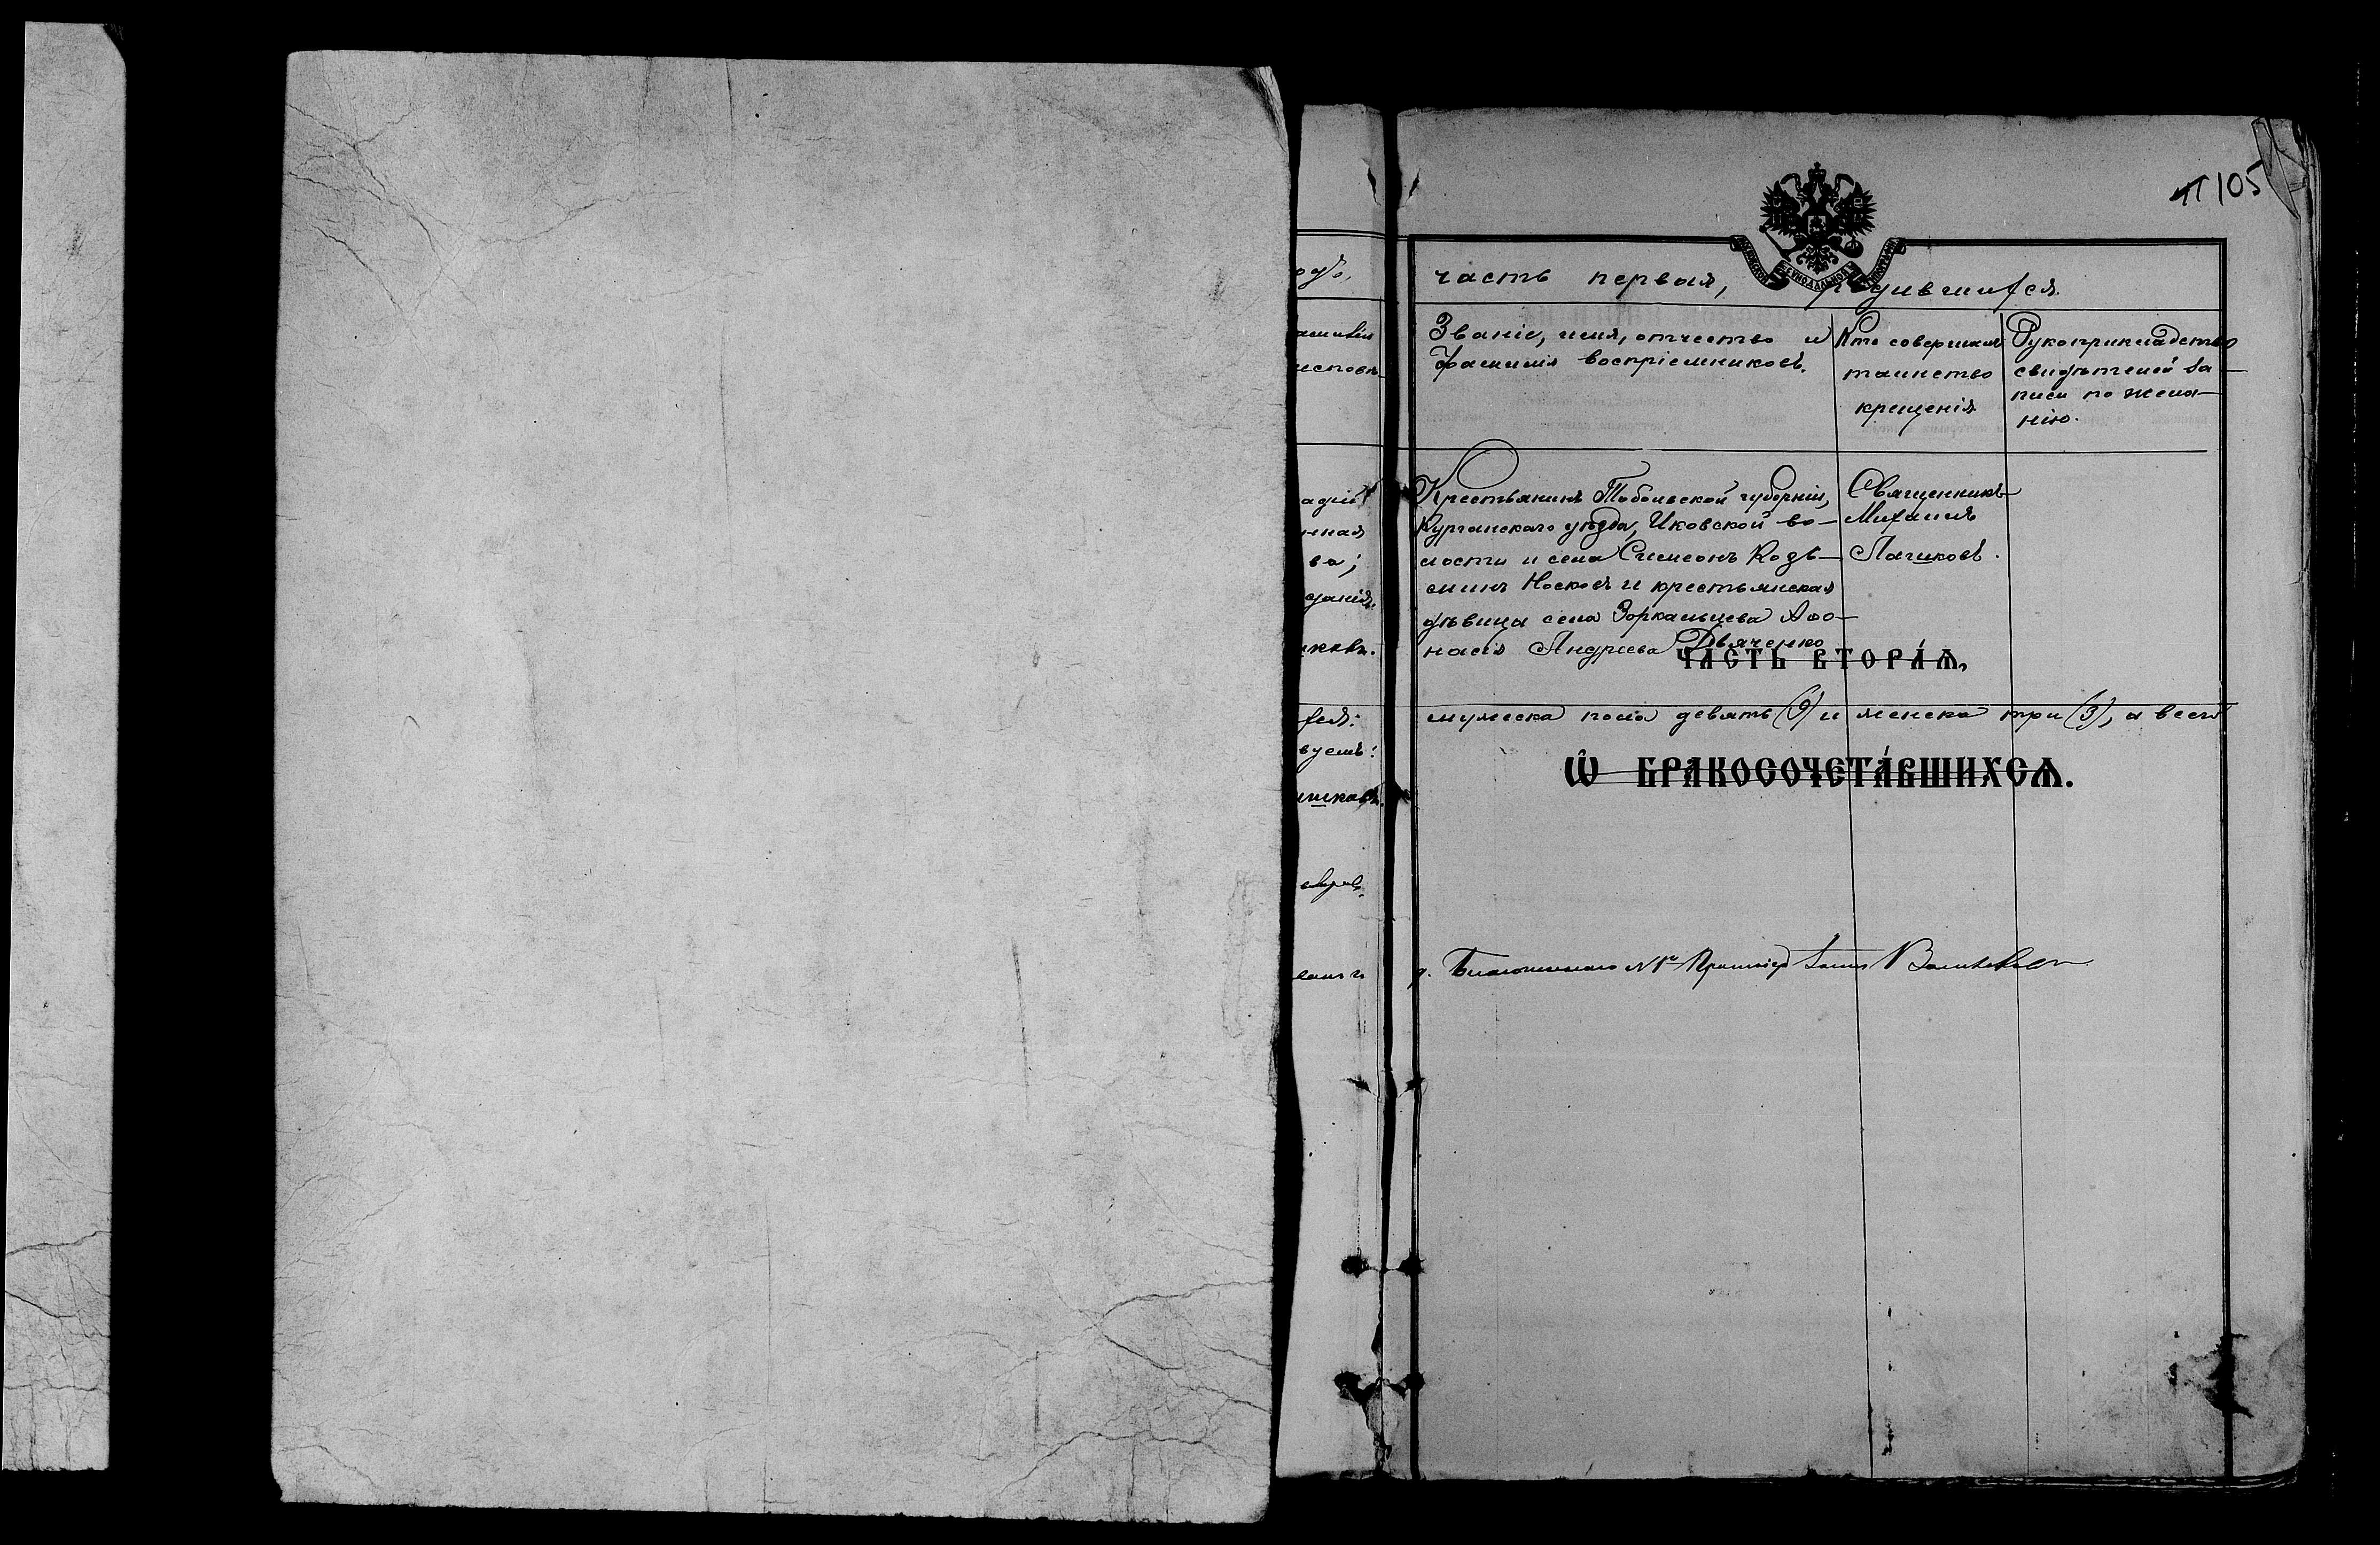 105
одъ,
часть первая, родившихся.
Званіе, имя, отчество и
фамилія воспріемниковъ.
Кто совершалъ
таинство
крещенія
Рукоприкладство
свидѣтелей за-
писи по жела-
нію.
Крестьянинъ Тобольской губерніи,
Курганскаго уѣзда, Иковской во-
лости и села Сѵмеонъ Козь-
минъ Носковъ и крестьянская
дѣвица села Зоркальцева Аѳо-
насія Андреева Дьяченко
Священникъ
Михаилъ
Лашковъ.
ЧАСТЬ ВТОРА́Ѧ,
мужеска пола девять (9) и женска три (3), а всего
Ѡ БРАКОСОЧЕТА́ВШИХСѦ.
Благочинного № 1го